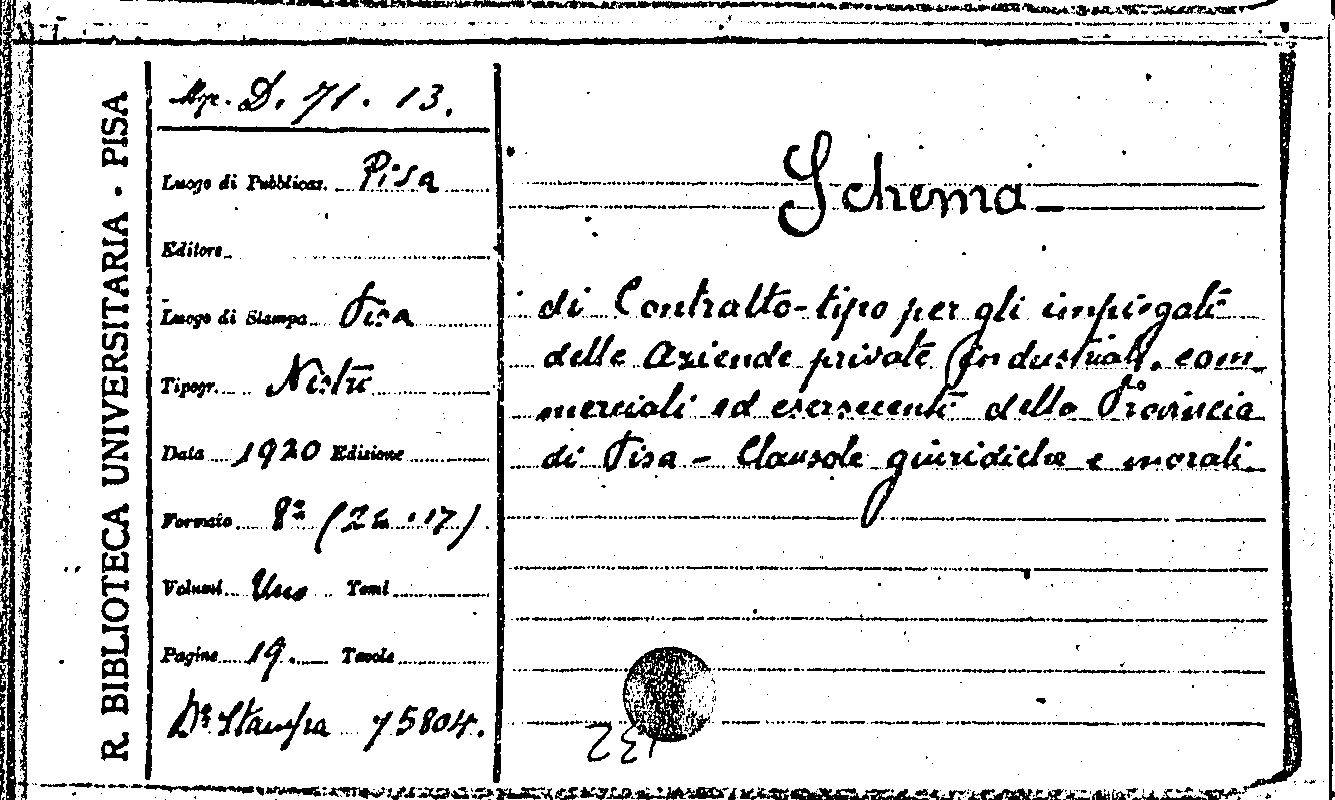 R. BIBLIOTECA UNIVERSITARIA - PISA
D. 71. 13.
Luogo di Pubblicaz. Pisa
Editore
Luogo di Stampa Pisa
Tipogr. Nistri
Data 1920 Edizione
Formato 8º (24.17)
Volumi Uno Tomi
Pagine 19. Tavole
Dº Stampa 75804.
Schema
di Contratto-tipo per gli impiegati
delle Aziende private (industriali, com
merciali ed esercenti della Provincia
di Pisa - Clausole giuridiche e morali